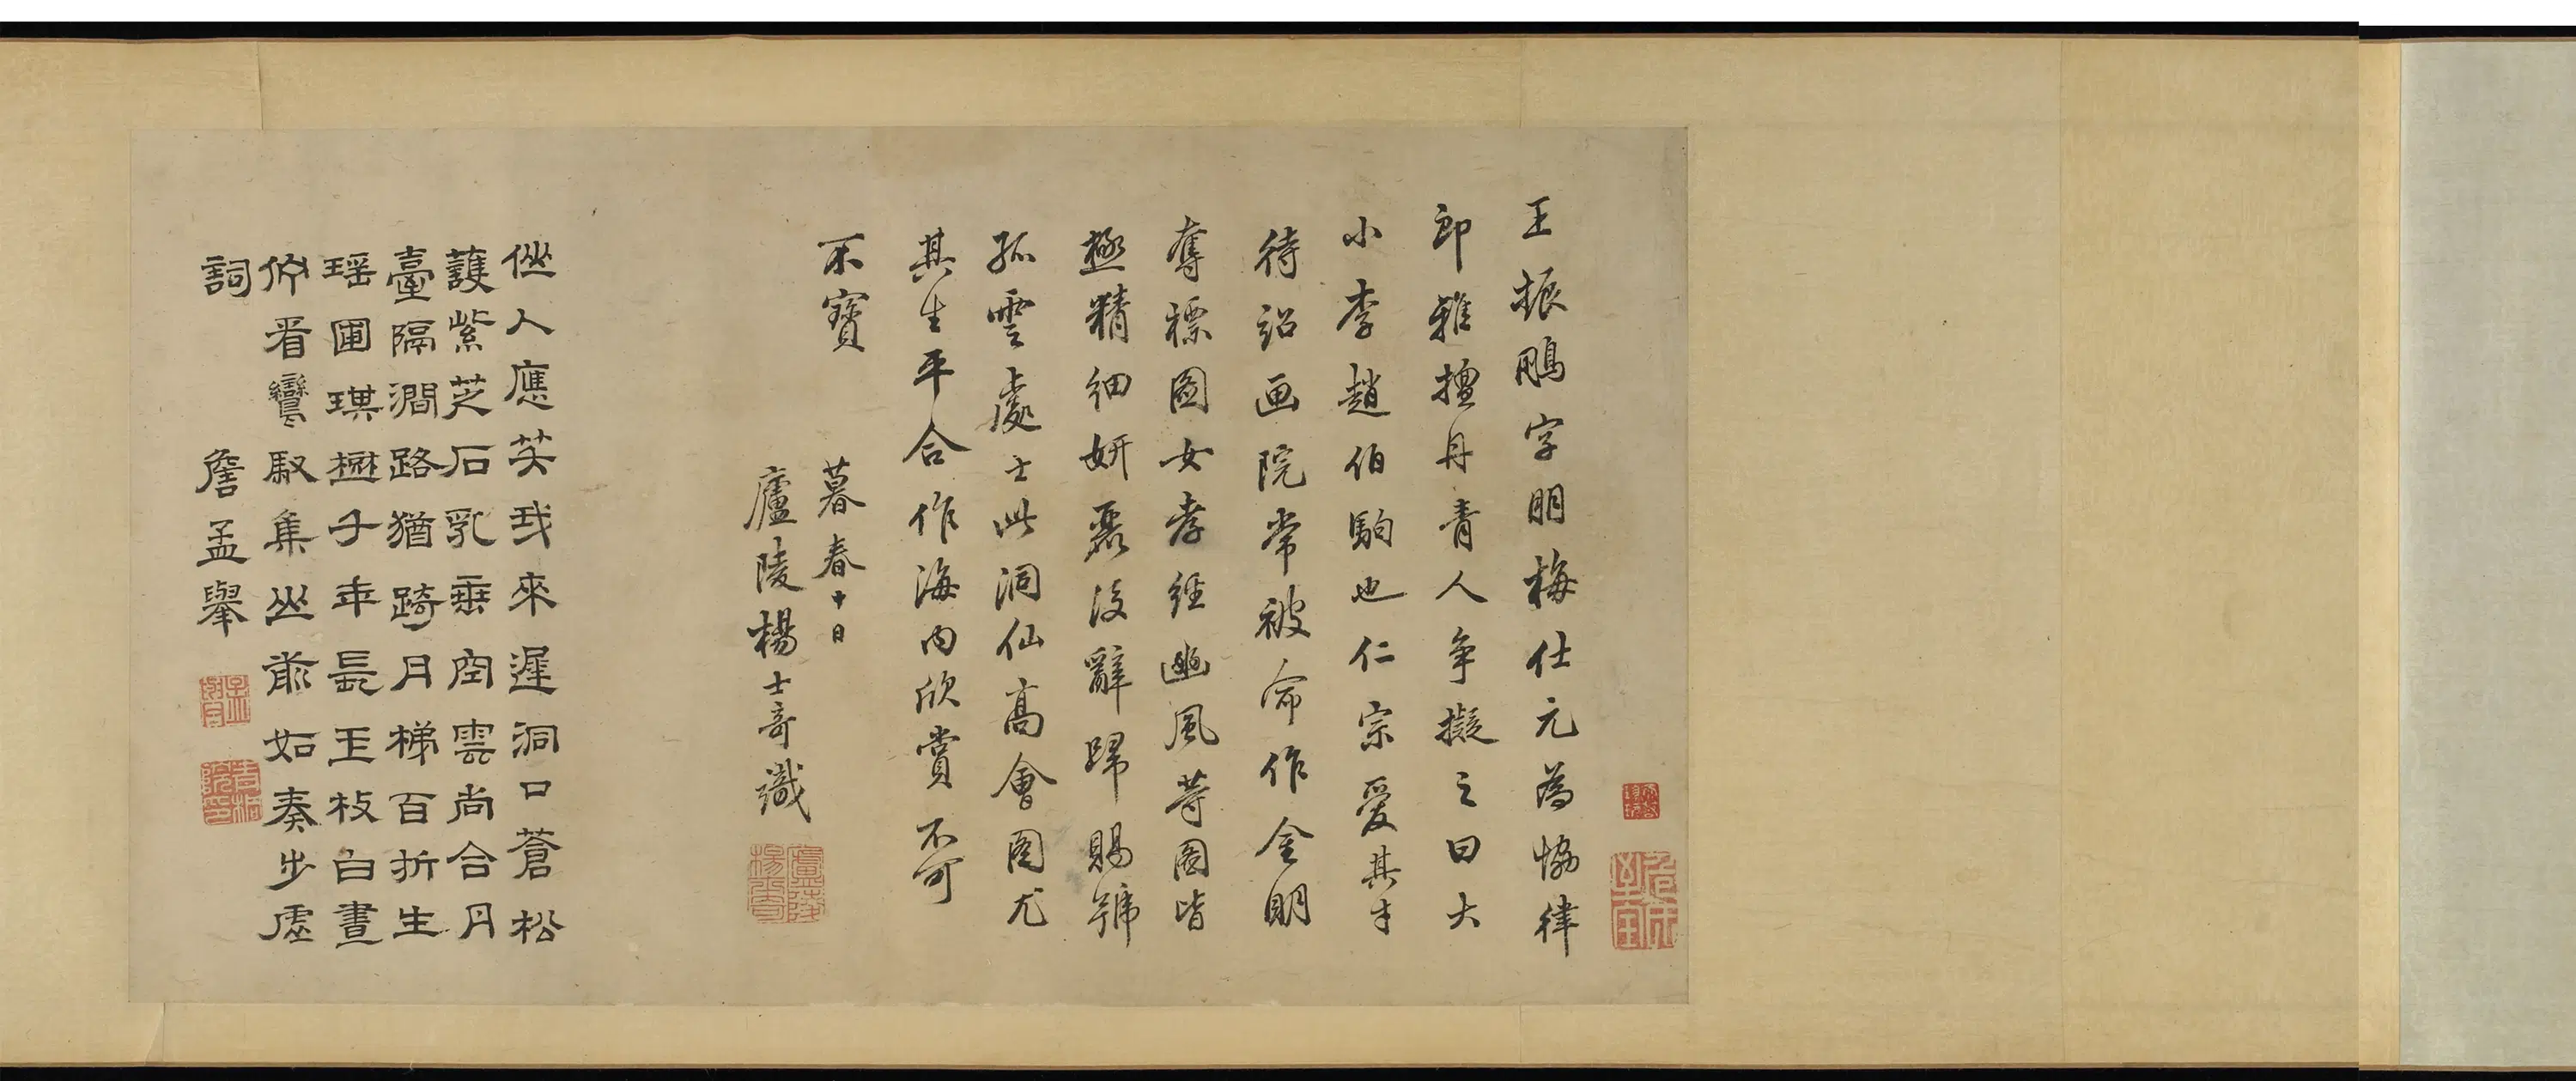 王振鵬字朋梅仕元為恊律
郎雅擅丹青人争擬之曰大
小李趙伯駒也仁宗愛其才
待詔画院常被命作金明
奪標圖女孝經豳風等圖皆
極精細妍麗後辭歸賜號
孤雲處士此洞仙高會圖尤
其生平合作海内欣賞不可
不寶
暮春十日
廬陵楊士奇識
廬陵
楊士奇
仙人應笑我來遲洞口蒼松
護紫芝石乳垂空雲尚合丹
臺隔澗路猶踦月梯百折生
瑶圃琪樹千年長玉枝白晝
仰看鸞馭集丛前如奏步虛
詞
詹孟舉